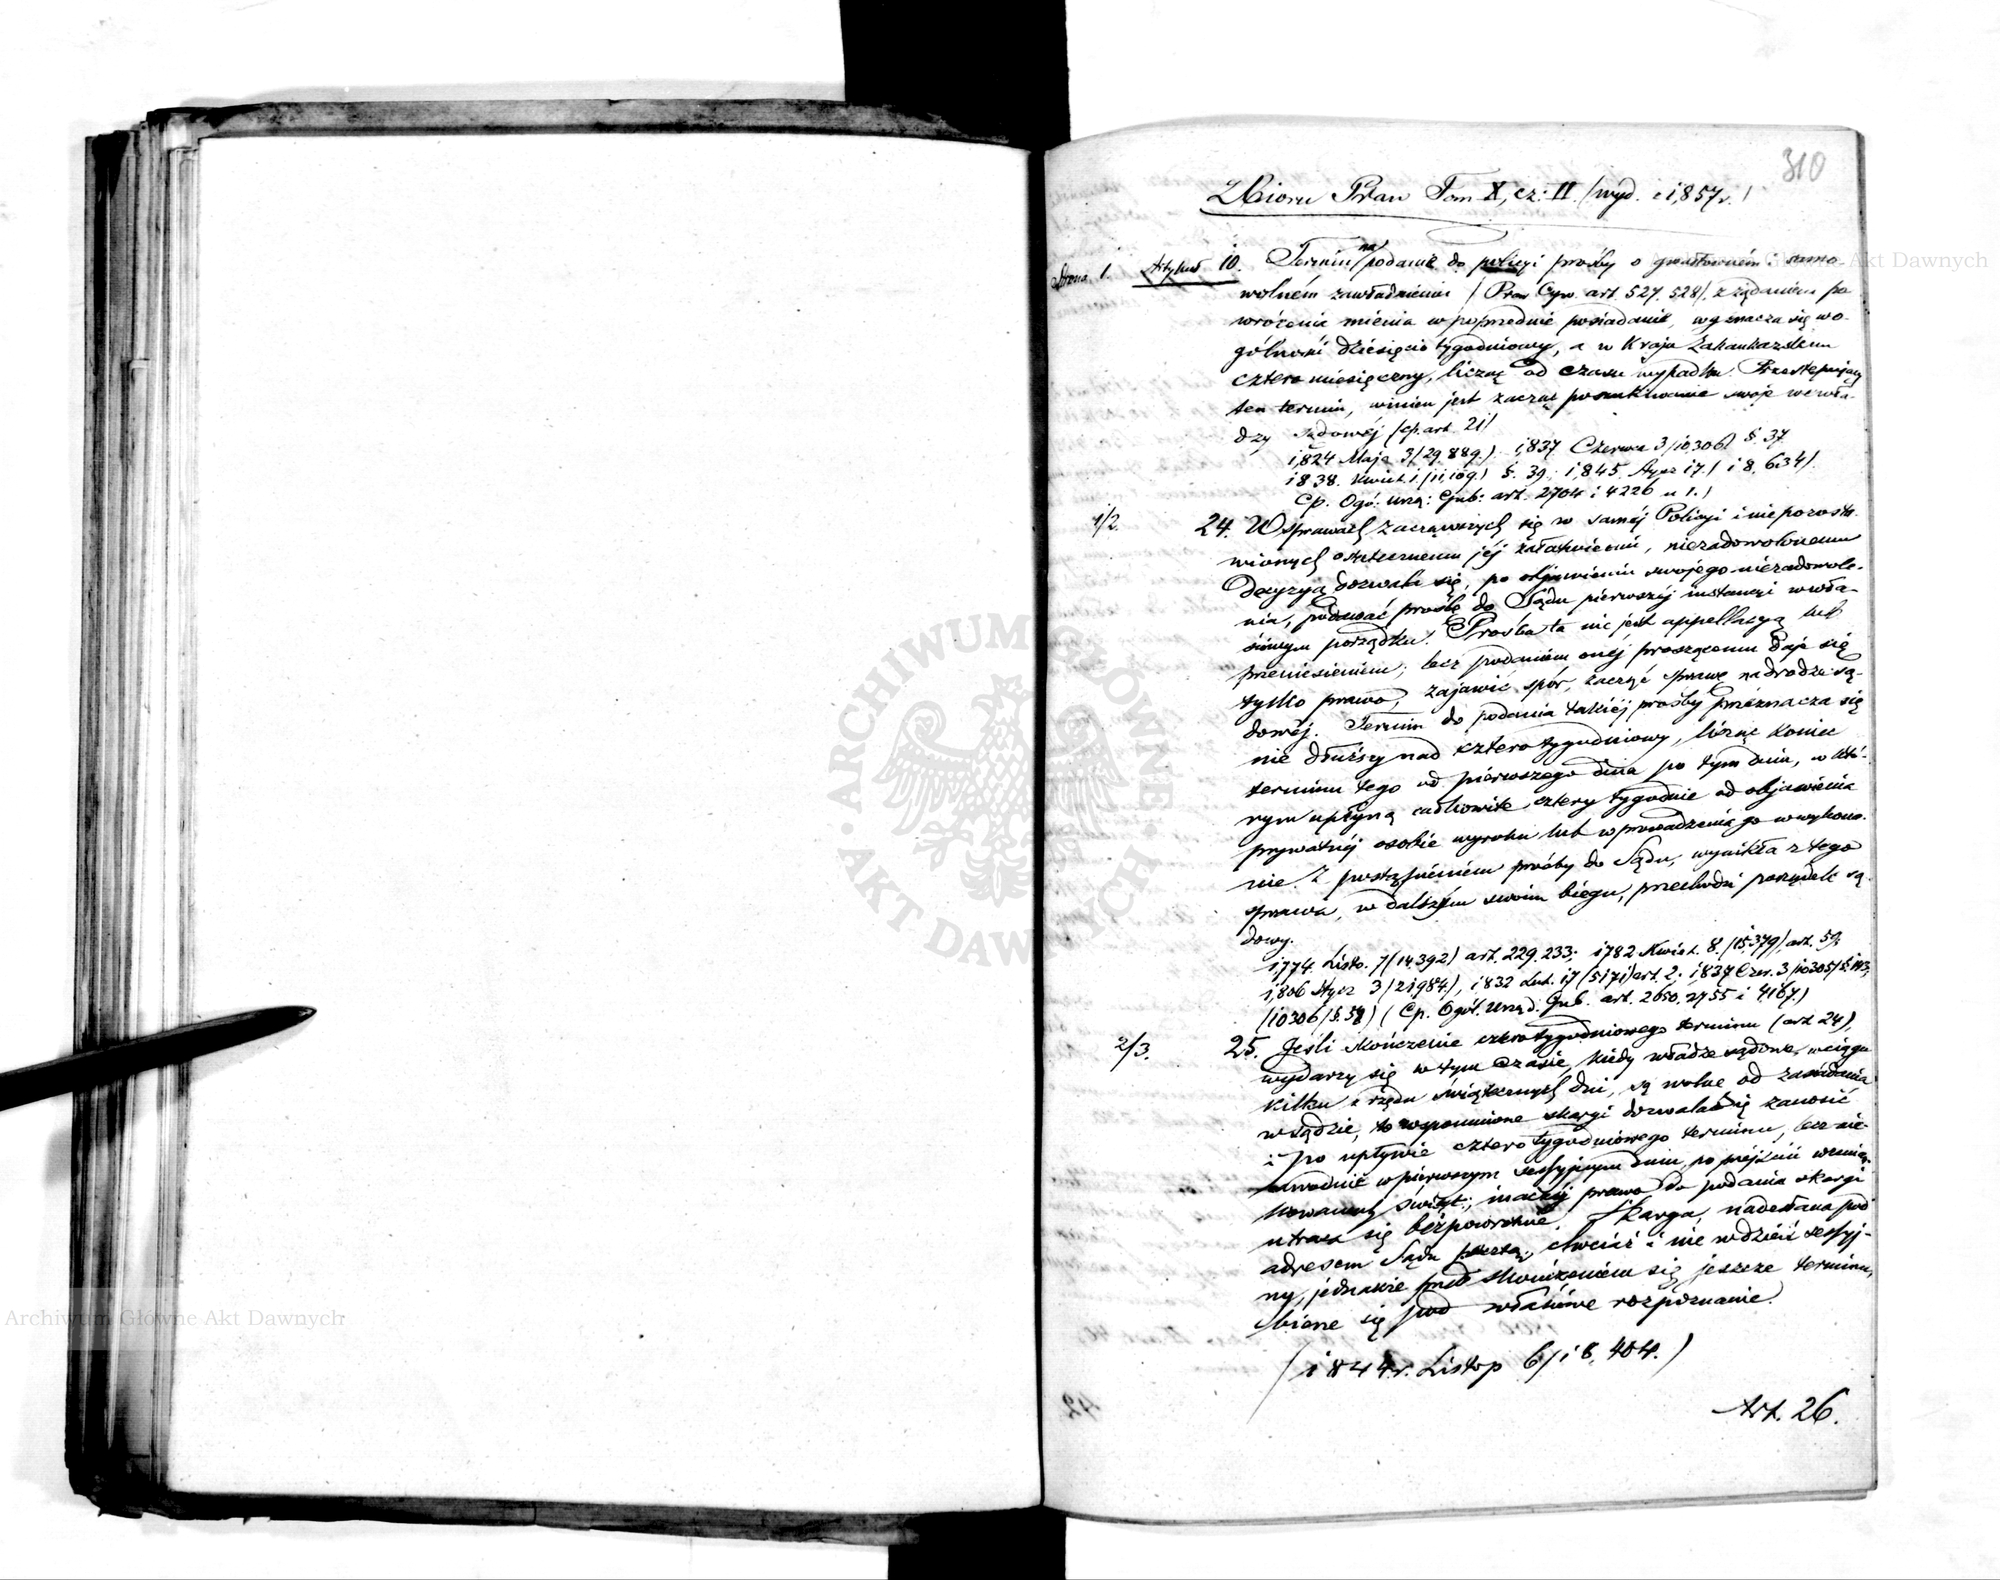 310
Zbioru Praw Tom X, cz: II. (wyd. 1,857 r.)
Strona 1. Artykuł 10. Termin na podanie do policyi prośby o gwałtowném i samo-
wolném zawładnieniu (Praw Cyw. art. 527. 528), z żądaniem po
wrócenia mienia w poprzednie posiadanie, wyznacza się wo-
gólności dziesięcio tygodniowy, a w Kraju Zakaukazskim
cztero miesięczny, licząc od czasu wypadku. Przestępujący
ten termin, winien jest zacząć poszukiwanie swoje we wła-
dzy sądowéj (cp. art. 21)
1,824 Maja 3 (29.889.) 1,837 Czerwca 3 (10306) §. 37
1838. Kwiet. 1. (11,109.) §. 39; 1,845. Stycz 17. (18,634).
Cp. Ogó. urzą: Gub: art. 2704 i 4226 u 1.)
1/2. 24. W sprawach zacząwszych się w saméj Policyi i niepozosta-
wionych ostatecznemu jéj załatwieniu, niezadowolonemu
decyzyą dozwala się, po objawieniu swojego niezadowole-
nia, podawać prośbę do Sądu pierwszéj instancyi w wła-
ściwym porządku. Prośba ta nie jest appellacyą lub
przeniesieniem; lecz podaniem onéj proszącemu daje się
tylko prawo, zajawić spór, zacząć sprawę na drodze są-
dowéj. Termin do podania takiéj prośby przeznacza się
nie dłuższy nad cztero tygodniowy, licząc koniec
terminu tego od pierwszego dnia po tym dniu, w któ-
rym upłyną całkowite cztery tygodnie od objawienia
prywatnéj osobie wyroku lub wprowadzenia go w wykona-
nie. Z postąpieniem prośby do Sądu, wynikła z tego
sprawa, w dalszym swoim biegu, przechodzi porządek są
dowy.
1,774. Listo. 7 (14.392) art. 229. 233; 1782 Kwiet. 8. (15,379) art. 59;
1,806 Stycz 3 (21,984.), 1832 Lut. 17 (5171) art. 2; 1,837 Czer. 3 (10305) §. 143;
(10306) §. 59) (Cp. Ogól. Urząd. Gub. art. 2650. 2755 i 4167.)
2/3. 25. Jeśli skończenie cztero tygodniowego terminu (art 24),
wydarzy się w tym czasie, kiedy władze sądowe, w ciągu
kilku z rzędu świątecznych dni, są wolne od zasiadania
w sądzie, to wspomnione skargi dozwala się zanosić
i po upływie cztero tygodniowego terminu, lecz nie-
zawodnie w pierwszym sessyjnym dniu, po przejściu wzmian-
kowanych świąt; inaczéj prawo do podania skargi
utraca się bezpowrotnie. Skarga, nadesłana pod
adresem Sądu pocztą, chociaż i nie w dzień sessyj-
ny, jednakże przed skończeniem się jeszcze terminu,
bierze się pod właściwe rozpoznanie.
(1844 r. Listop 6) 18,404.)
Art. 26.
Archiwum Główne Akt Dawnych
ARCHIWUM GŁÓWNE AKT DAWNYCH
Akt Dawnych